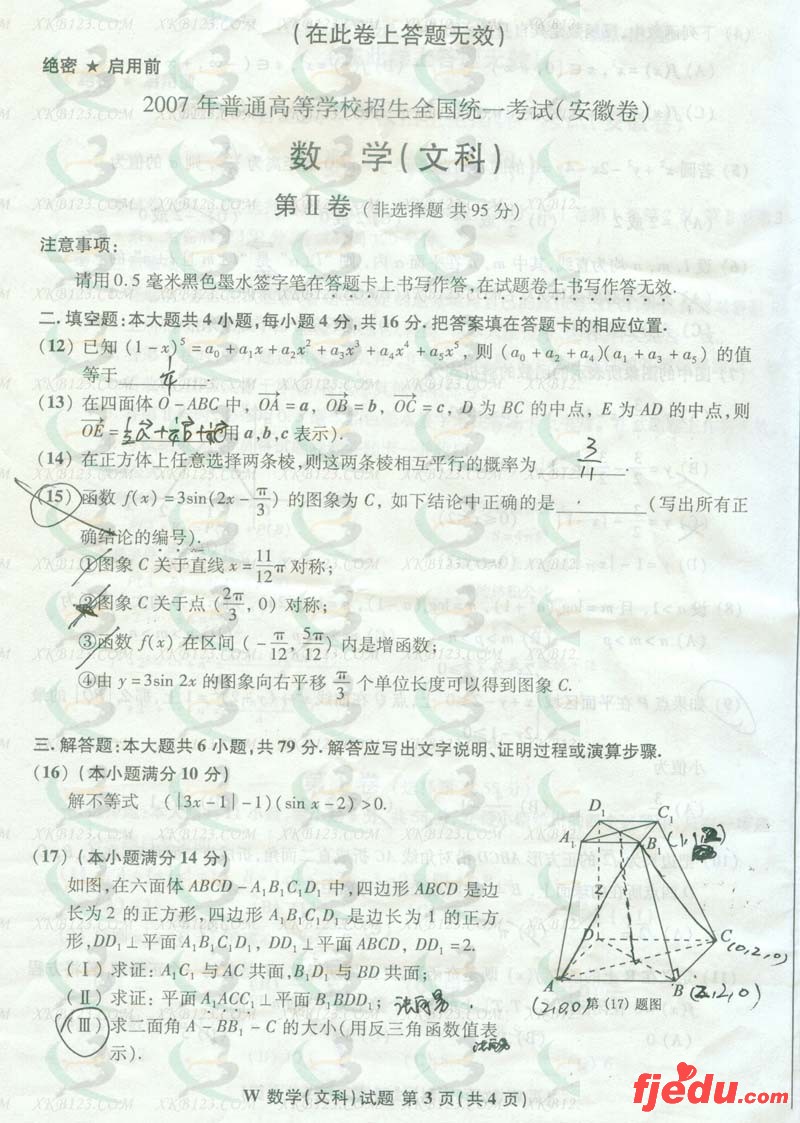 (在此卷上答题无效)
绝密 ★ 启用前
2007 年普通高等学校招生全国统一考试(安徽卷)
数 学(文科)
第Ⅱ卷 (非选择题 共95分)
注意事项:
请用0.5毫米黑色墨水签字笔在答题卡上书写作答,在试题卷上书写作答无效.
二.填空题:本大题共4小题,每小题4分,共16分.把答案填在答题卡的相应位置.
(12) 已知 (1-x)⁵=a₀+a₁x+a₂x²+a₃x³+a₄x⁴+a₅x⁵, 则 (a₀+a₂+a₄)(a₁+a₃+a₅) 的值
等于
(13) 在四面体 O-ABC 中, OA→=a, OB→=b, OC→=c, D 为 BC 的中点, E 为 AD 的中点,则
OE→= 用 a,b,c 表示).
(14) 在正方体上任意选择两条棱,则这两条棱相互平行的概率为 3/11 .
(15) 函数 f(x)=3sin(2x-π/3) 的图象为 C, 如下结论中正确的是 (写出所有正
确结论的编号).
①图象 C 关于直线 x=11/12π 对称;
②图象 C 关于点 (2π/3, 0) 对称;
③函数 f(x) 在区间 (-π/12, 5π/12) 内是增函数;
④由 y=3sin 2x 的图象向右平移 π/3 个单位长度可以得到图象 C.
三.解答题:本大题共6小题,共79分.解答应写出文字说明、证明过程或演算步骤.
(16) (本小题满分10分)
解不等式 (|3x-1|-1)(sin x-2)>0.
(17) (本小题满分14分)
如图,在六面体 ABCD-A₁B₁C₁D₁ 中,四边形 ABCD 是边
长为2的正方形,四边形 A₁B₁C₁D₁ 是边长为1的正方
形,DD₁⊥平面A₁B₁C₁D₁, DD₁⊥平面ABCD, DD₁=2.
(Ⅰ) 求证: A₁C₁ 与 AC 共面,B₁D₁ 与 BD 共面;
(Ⅱ) 求证: 平面 A₁ACC₁⊥平面 B₁BDD₁;
(Ⅲ) 求二面角 A-BB₁-C 的大小(用反三角函数值表
示).
D₁
C₁
A₁
B₁
2
D
C
(0,2,0)
A
B
(2,0,0)
(2,2,0)
第(17)题图
W 数学(文科)试题 第3页(共4页)
fjedu.com